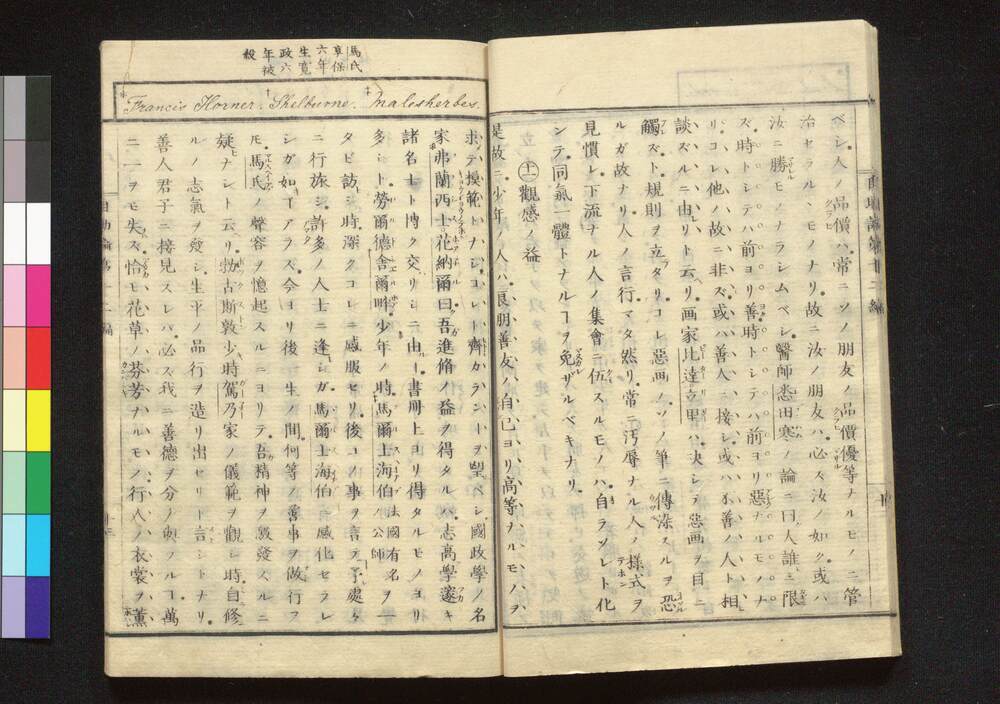 ベシ人ノ品價ハ常ニソノ朋友ノ品價優等ナルモノニ管
治セラルヽモノナリ故ニ汝ノ朋友ハ必ス汝ノ如ク或ハ
汝ニ勝モノナラシムベシ醫師悉田寒ノ論ニ曰人誰ニ限
ズ時トシテハ前ヨリ善時トシテハ前ヨリ惡ナルモノナ
リコレ他ノ故ニ非ズ或ハ善人ニ接シ或ハ不善ノ人ト相
談ズルニ由リト云リ画家比達立里ハ决シテ惡画ヲ目ニ
觸ズト規則ヲ立タリコレ惡画ノソノ筆ニ傳染スルヲ恐
ルガ故ナリ人ノ言行マタ然リ常ニ汚辱ナル人ノ様式ヲ
見慣レ下流ナル人ノ集會ニ伍スルモノハ自ラソレト化
シテ同氣一體トナルコヲ免ザルベキナリ
㊉觀感ノ益
是故ニ少年ノ人ハ良朋善友ノ自己ヨリ高等ナルモノヲ
馬氏
享保
六年
生寛
政六
年被
殺
Francis Horner. Shelburne. Malesherbes.
求テ摸範トナシコレト齊カランヿヲ望ベシ國政學ノ名
家弗蘭西士花納爾曰吾進脩ノ益ヲ得タルハ志高學邃キ
諸名士ト博ク交リシニ由ル書册上ヨリ得タルモノヨリ
多シト勞爾德舍爾畔少年ノ時馬爾士海伯法國有名ノ公師ヲ
タビ訪シ時深クコレニ感服セリ後コノ事ヲ言テ予處々
ニ行旅シ許多ノ人士ニ逢シガ馬爾士海伯ニ感化セラレ
シガ如キヿアラズ今ヨリ後一生ノ間何等ノ善事ヲ做行フ
モ馬氏ノ聲容ヲ憶起スルニヨリテ吾精神ヲ激發スルニ
疑ナシト云リ勃古斯敦少時駕乃家ノ儀範ヲ觀シ時自修
ルノ志氣ヲ發シ生平ノ品行ヲ造リ出セリト言シトナリ
善人君子ニ接見スレバ必ス我ニ善德ヲ分ノ與フルコ萬
ニ一ヲモ失ズ恰モ花草ノ芬芳ナルモノ行人ノ衣裳ヲ薰